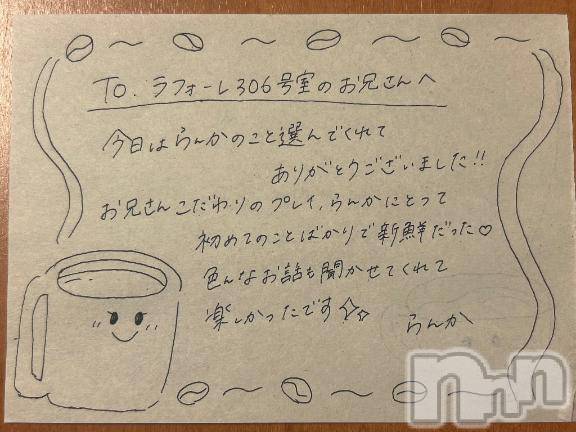 To. ラフォーレ306号室のお兄さんへ
今日はらんかのこと選んでくれて
ありがとうございました!!
お兄さんこだわりのプレイ、らんかにとって
初めてのことばかりで新鮮だった♡
色んなお話も聞かせてくれて
楽しかったです☆☆
らんか
nnn